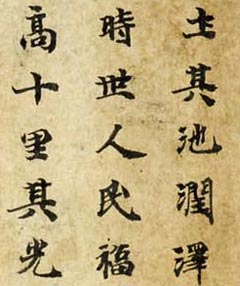 士其池潤澤
時世人民福
高十里其光